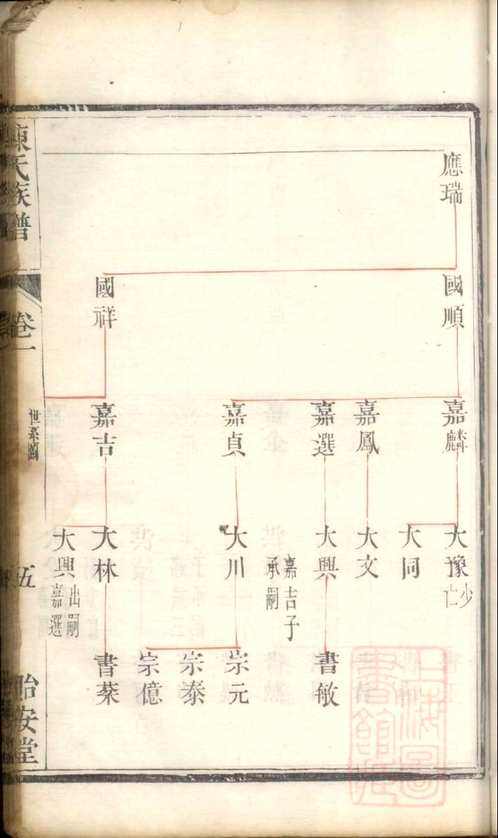 應瑞
國順
國祥
嘉麟
嘉鳳
嘉選
嘉貞
嘉吉
大豫 少亡
大同
大文
大興 嘉吉子承嗣
大川
大林
大興 出嗣嘉選
書敏
宗元
宗泰
宗億
書棻
陳氏族譜
卷一
世系圖
五
怡安堂